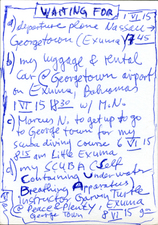 WAITING FOR
a) departure plane Nassau →
Georgetown (Exuma) 7:45
1 VI 15
b) my luggage & rental
car @ Georgetown airport
on Exuma, Bahamas
1 VI 15 18:30 w/ M.N.
c) Marcus N. to get up to go
to George Town for my
scuba diving course 6 VI 15
8:15 am Little Exuma
d) my SCUBA (Self
Containing Underwater
Breathing Apparatus)
Instructor Garvin Turtle
@ Peace & Plenty, Exuma
George Town 8 VI 15